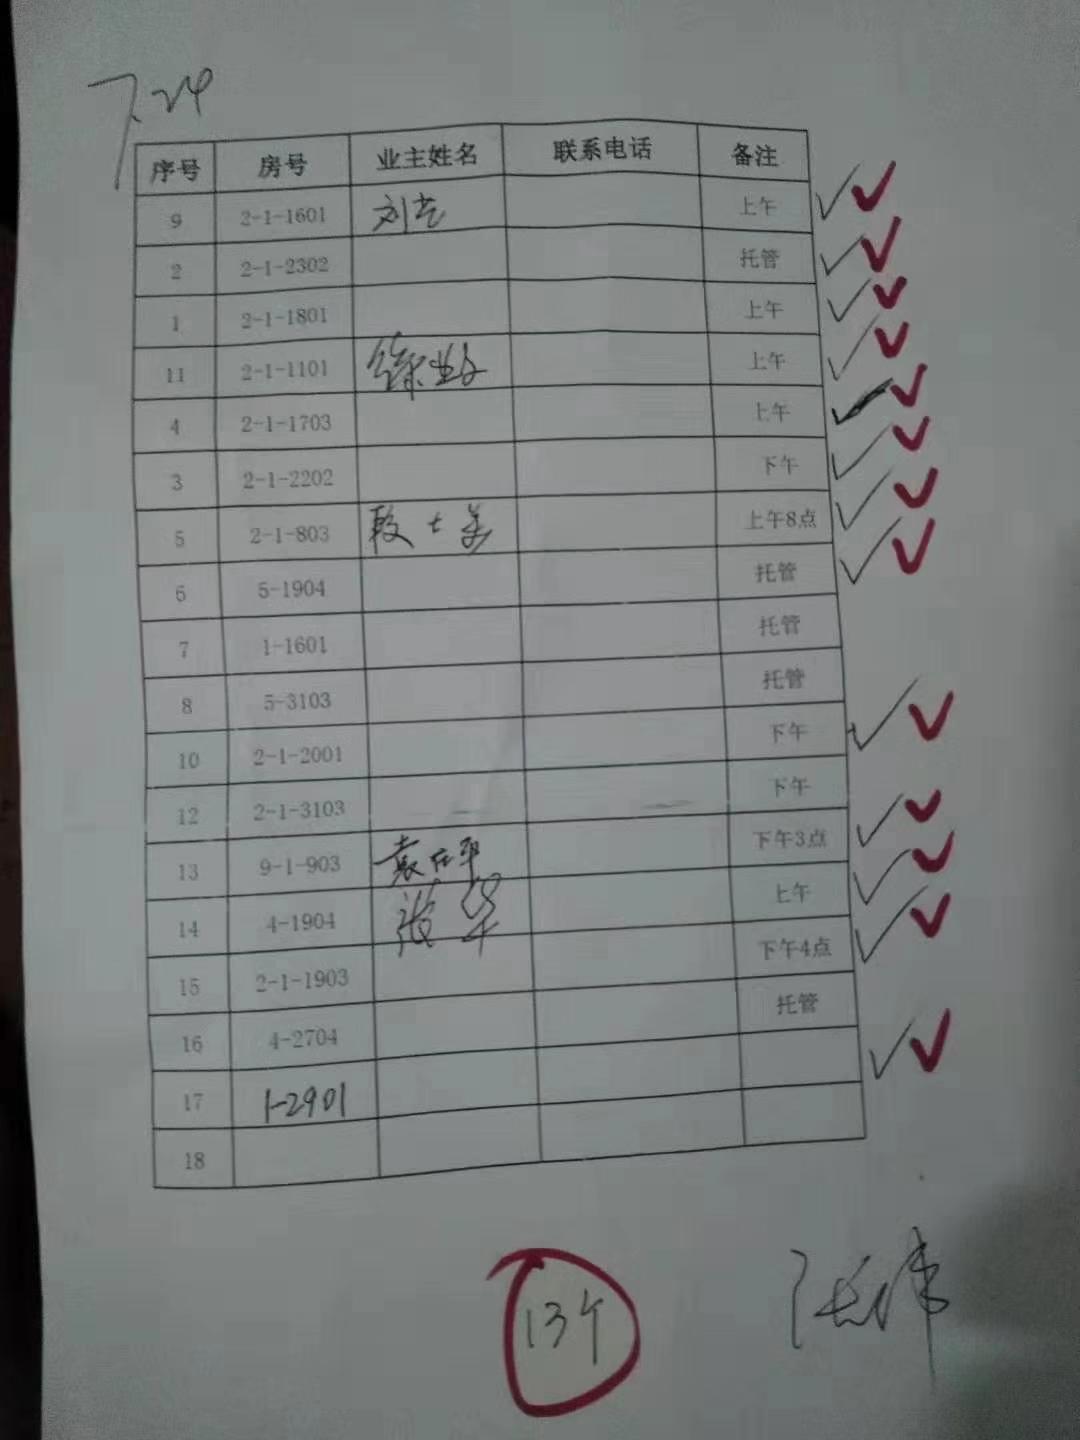 7.24
序号 房号 业主姓名 联系电话 备注
9 2-1-1601 刘 上午
2 2-1-2302 托管
1 2-1-1801 上午
11 2-1-1101 徐 上午
4 2-1-1703 上午
3 2-1-2202 下午
5 2-1-803 段 上午8点
6 5-1904 托管
7 1-1601 托管
8 5-3103 托管
10 2-1-2001 下午
12 2-1-3103 下午
13 9-1-903 袁 平 下午3点
14 4-1904 张华 上午
15 2-1-1903 下午4点
16 4-2704 托管
17 1-2901
18
13个